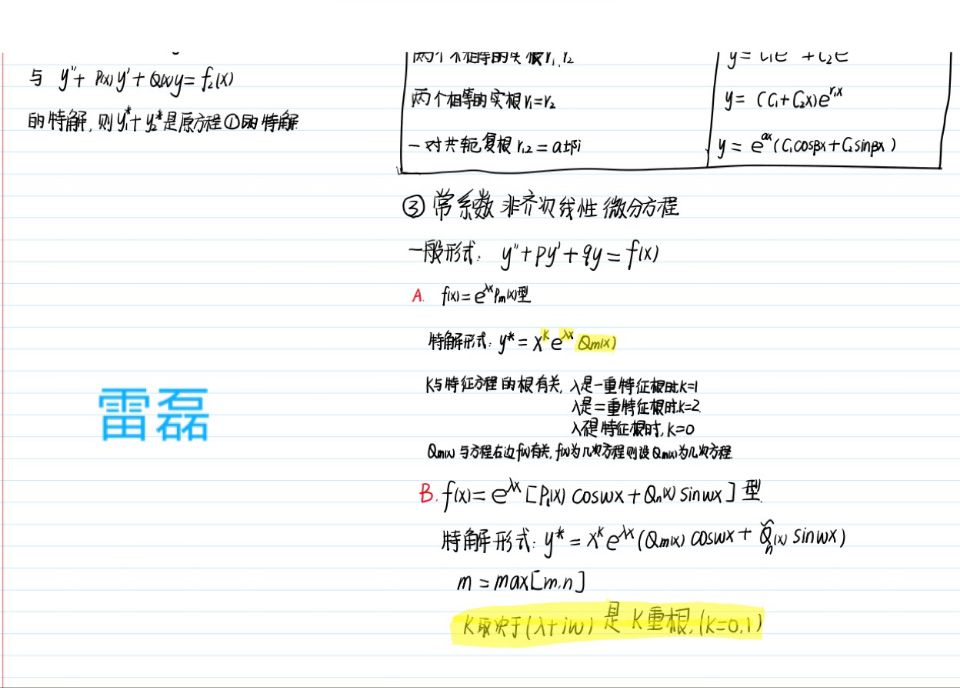 与 y''+ P(x)y'+ Q(x)y= f₂(x)
的特解,则y₁*+ y₂*是原方程①的特解.
两个不相等的实根r₁,r₂
两个相等的实根r₁=r₂
y= (C₁+C₂x)e^{r₁x}
一对共轭复根r₁,₂=α±βi
y= e^{αx}(C₁cosβx+C₂sinβx)
③常系数非齐次线性微分方程
一般形式: y''+py'+qy=f(x)
A. f(x)=e^{λx}Pm(x)型
特解形式: y*= x^k e^{λx} Qm(x)
K与特征方程的根有关, λ是一重特征根时k=1
λ是二重特征根时k=2
λ不是特征根时,k=0
Qm(x)与方程右边f(x)有关,f(x)为几次方程则设Qm(x)为几次方程.
B. f(x)=e^{λx}[Pl(x)coswx+Qn(x)sinwx]型
特解形式: y*= x^k e^{λx}(Qm(x)coswx+Q̃n(x)sinwx)
m=max[m,n]
K取决于(λ+iw)是K重根,(K=0,1)
雷磊